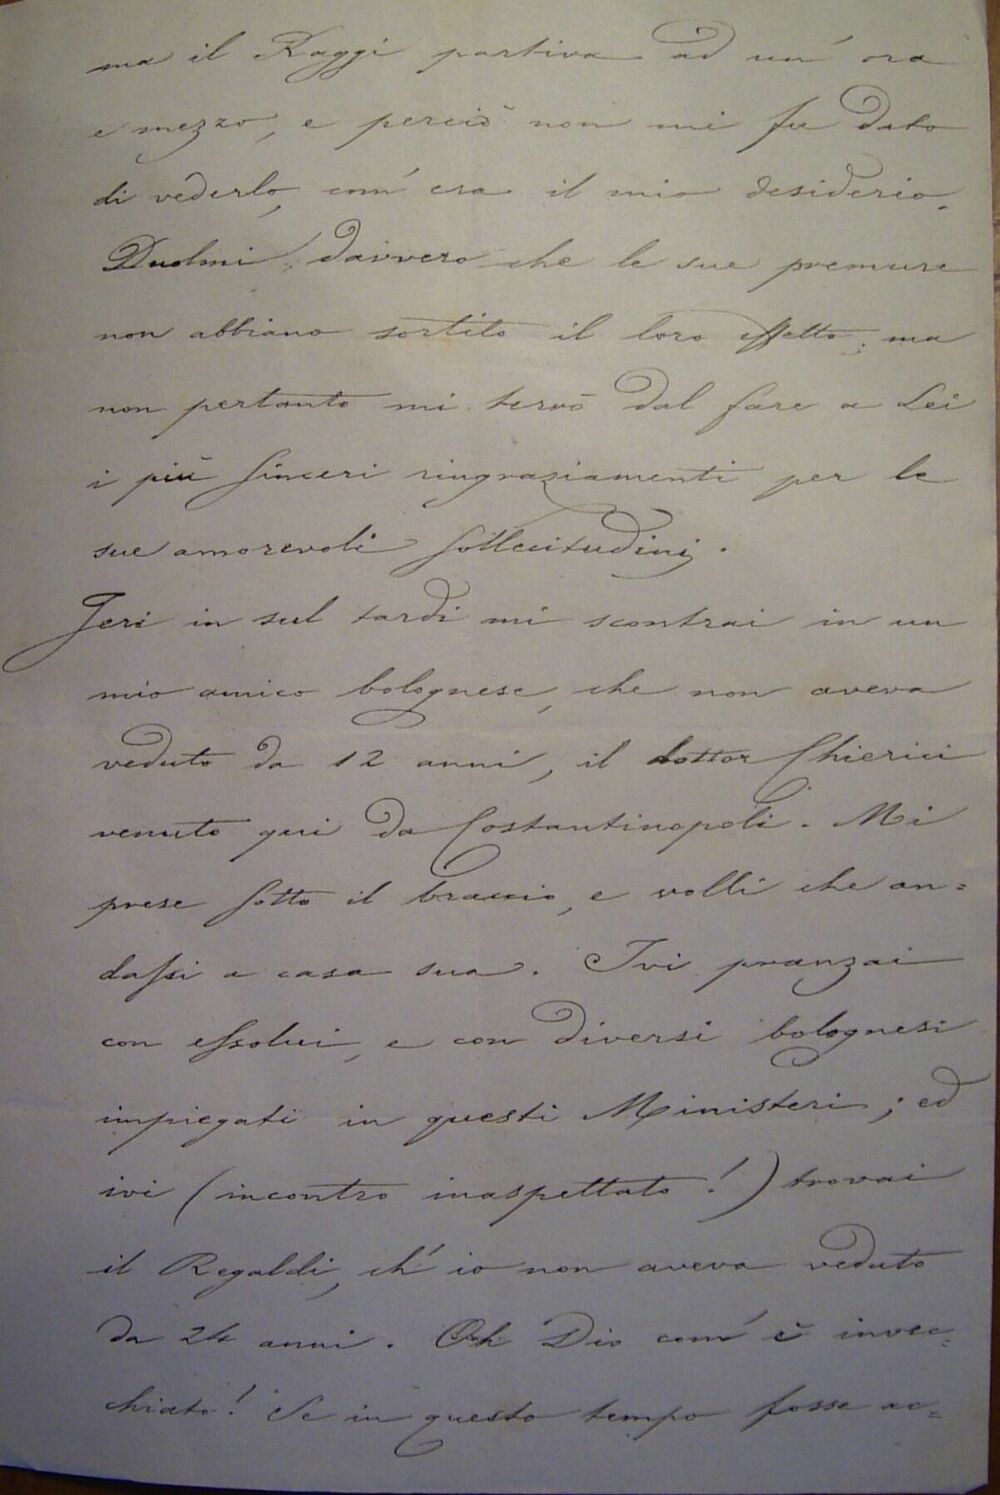 ma il Raggi partiva ad un' ora
e mezzo, e perciò non mi fu dato
di vederlo, com' era il mio desiderio.
Duolmi davvero che le sue premure
non abbiano sortito il loro effetto; ma
non pertanto mi terrò dal fare a Lei
i più sinceri ringraziamenti per le
sue amorevoli sollecitudini.
Jeri in sul tardi mi scontrai in un
mio amico bolognese, che non aveva
veduto da 12 anni, il dottor Chierici
venuto qui da Costantinopoli. Mi
prese sotto il braccio, e volli che an=
dassi a casa sua. Ivi pranzai
con essolui, e con diversi bolognesi
impiegati in questi Ministeri; ed
ivi (incontro inaspettato!) trovai
il Regaldi, ch' io non aveva veduto
da 24 anni. Oh Dio com' è invec=
chiato! Se in questo tempo fosse ac=